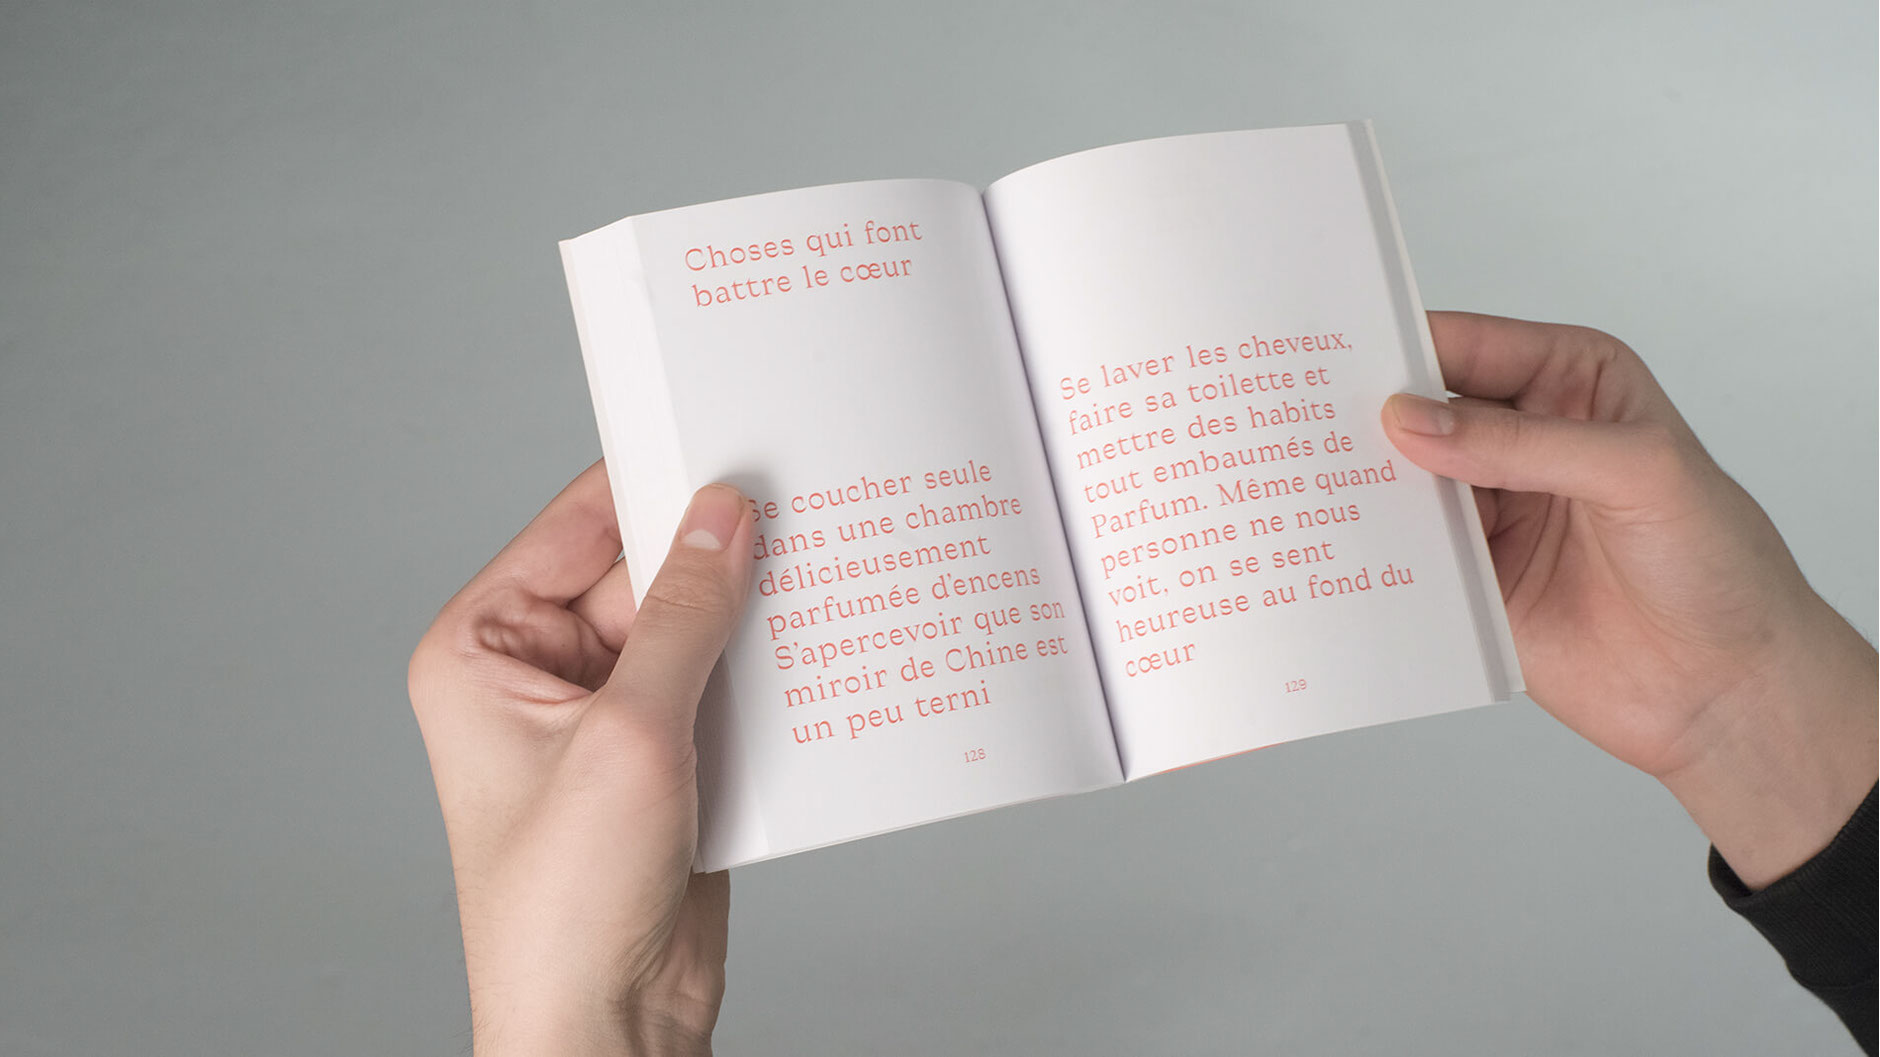 Choses qui font
battre le cœur
Se coucher seule
dans une chambre
délicieusement
parfumée d'encens
S'apercevoir que son
miroir de Chine est
un peu terni
128
Se laver les cheveux,
faire sa toilette et
mettre des habits
tout embaumés de
Parfum. Même quand
personne ne nous
voit, on se sent
heureuse au fond du
cœur
129